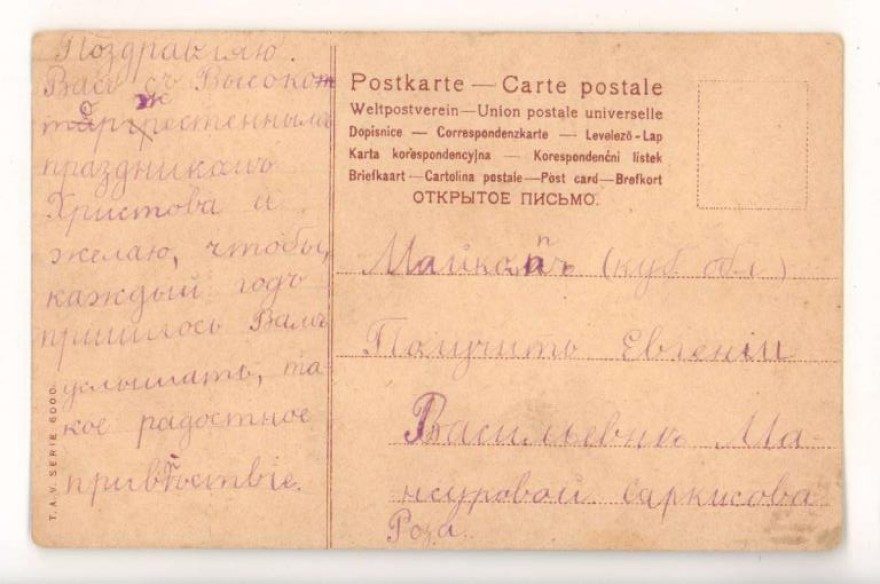 Поздравляю
Васъ съ Высоко-
торжественнымъ
праздникомъ
Христова и
желаю, чтобы,
каждый годъ
пришлось Вамъ
услышать, та-
кое радостное
привѣтствіе.
T. A. V. SERIE 6000.
Postkarte — Carte postale
Weltpostverein — Union postale universelle
Dopisnice — Correspondenzkarte — Levelező-Lap
Karta korespondencyjna — Korespondenční lístek
Briefkaart — Cartolina postale — Post card — Brefkort
ОТКРЫТОЕ ПИСЬМО.
Майкопъ (куб. обл.)
Получить Евгеніи
Васильевнѣ Ма-
нсуровой Саркисова
Роза.